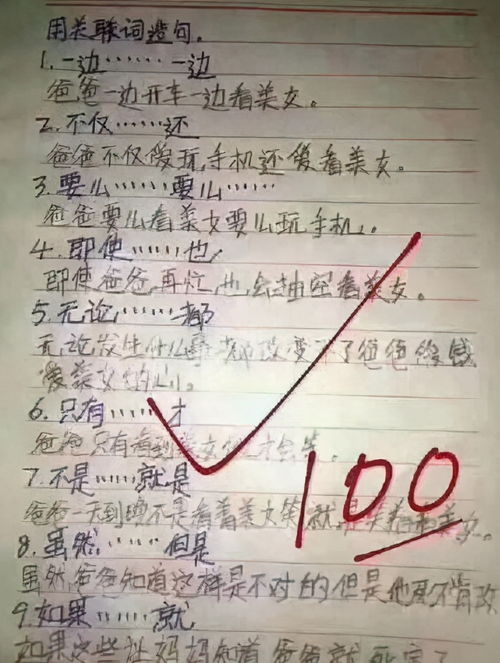 用关联词造句。
1.一边……一边
爸爸一边开车一边看美女。
2.不仅……还
爸爸不仅爱玩手机还爱看美女。
3.要么……要么……
爸爸要么看美女要么玩手机。
4.即使……也
即使爸爸再忙,也会抽空看美女。
5.无论……都
无论发生什么事都改变不了爸爸
爱美女的心。
6.只有……才
爸爸只有看到美女 才会笑。
7.不是……就是
爸爸一天到晚不是看着美女笑就是笑着看美女。
8.虽然……但是
虽然爸爸知道这样是不对的但是他 不肯改
9.如果……就
如果这些让妈妈知道爸爸就死定了
100